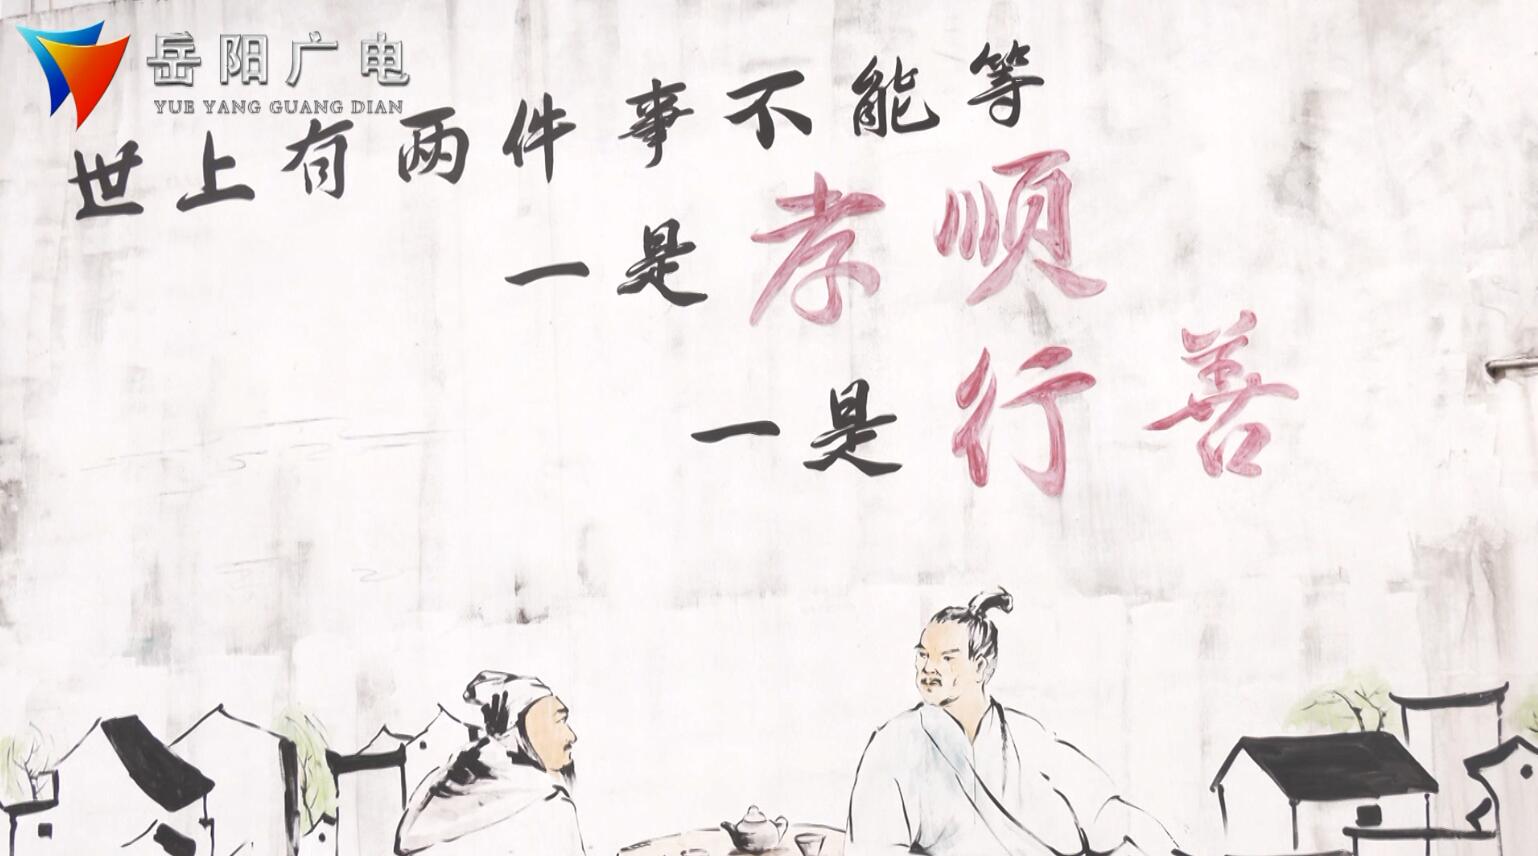 岳阳广电
YUE YANG GUANG DIAN
世上有两件事不能等
一是孝顺
一是行善